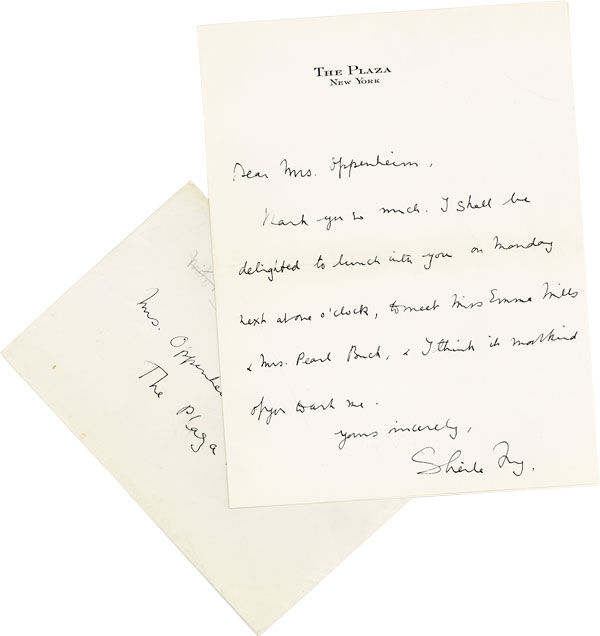 THE PLAZA
NEW YORK
Dear Mrs. Oppenheim,
Thank you so much. I shall be
delighted to lunch with you on Monday
next at one o'clock, to meet Miss Emma Mills
& Mrs. Pearl Buck, & I think it most kind
of you to ask me.
yours sincerely,
Sheila
Mrs. Oppenhei
The Plaza